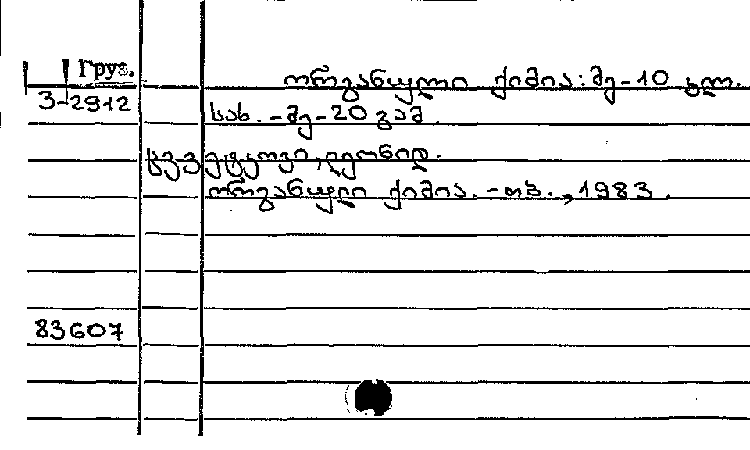 Груз.
ორგანული ქიმია: მე-10 კლ.
3-2912
სახ. - მე-20 გამ.
ცვეტკოვი, ლეონიდ.
ორგანული ქიმია. - თბ., 1983.
83607